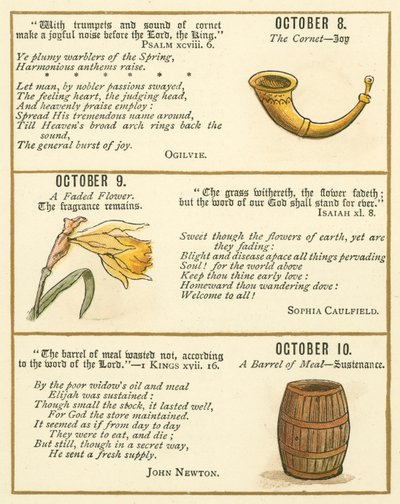 "With trumpets and sound of cornet
make a joyful noise before the Lord, the King."
PSALM xcviii. 6.
Ye plumy warblers of the Spring,
Harmonious anthems raise.
* * * * * *
Let man, by nobler passions swayed,
The feeling heart, the judging head,
And heavenly praise employ:
Spread His tremendous name around,
Till Heaven's broad arch rings back the
sound,
The general burst of joy.
OGILVIE.
OCTOBER 8.
The Cornet—Joy
OCTOBER 9.
A Faded Flower.
The fragrance remains.
"The grass withereth, the flower fadeth;
but the word of our God shall stand for ever."
ISAIAH xl. 8.
Sweet though the flowers of earth, yet are
they fading:
Blight and disease apace all things pervading
Soul! for the world above
Keep thou thine early love:
Homeward thou wandering dove:
Welcome to all!
SOPHIA CAULFIELD.
"The barrel of meal wasted not, according
to the word of the Lord."—1 KINGS xvii. 16.
By the poor widow's oil and meal
Elijah was sustained:
Though small the stock, it lasted well,
For God the store maintained.
It seemed as if from day to day
They were to eat, and die;
But still, though in a secret way,
He sent a fresh supply.
JOHN NEWTON.
OCTOBER 10.
A Barrel of Meal—Sustenance.